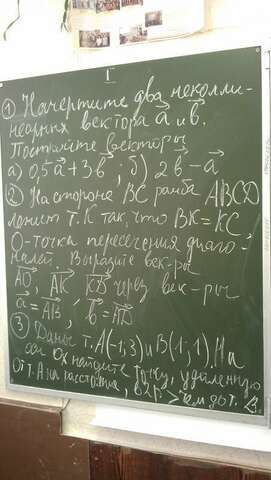 I
① Начертите два неколли-
неарных вектора a⃗ и b⃗.
Постройте векторы
а) 0,5a⃗ + 3b⃗; б) 2b⃗ - a⃗
② На стороне BC ромба ABCD
лежит т. K так, что BK = KC
O - точка пересечения диаго-
налей. Выразите век-ры
AO⃗, AK⃗, KD⃗ через век-ры
a⃗ = AB⃗, b⃗ = AD⃗
③ Даны т. A(-1;3) и B(1;1). На
оси Ox найдите точку, удалённую
От т. A на расстояние, в 2 р. > чем до т. B.